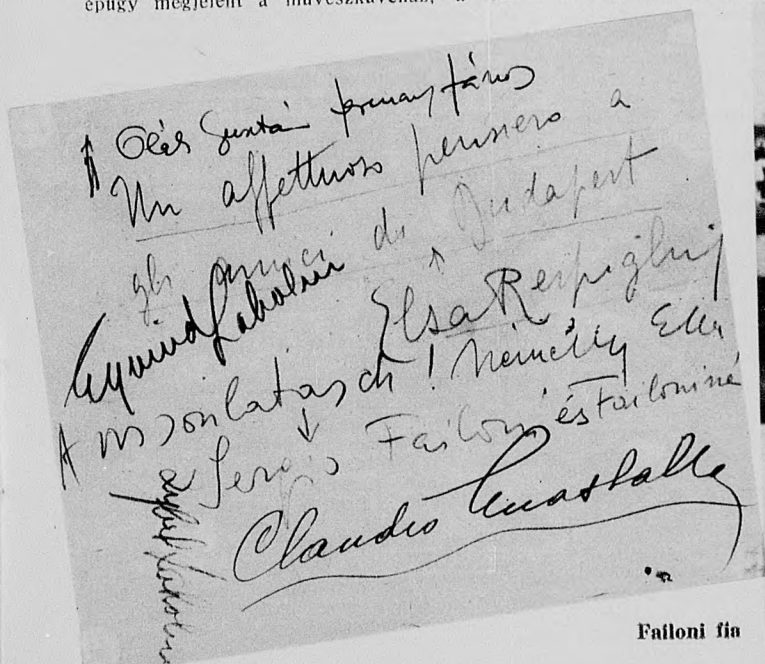 épúgy megjelent a művészkávénak, a
Oláh Gusztáv János
Un affettuoso pensiero a
gli amici di Budapest
Elsa Respighi
A viszontlátásra! Némethy Ella
Sergio Failoni és Failoniné
Claudio Guastalla
Failoni fia